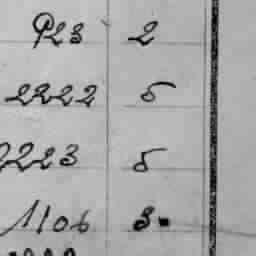 923 2
2222 5
2223 5
1106 3.